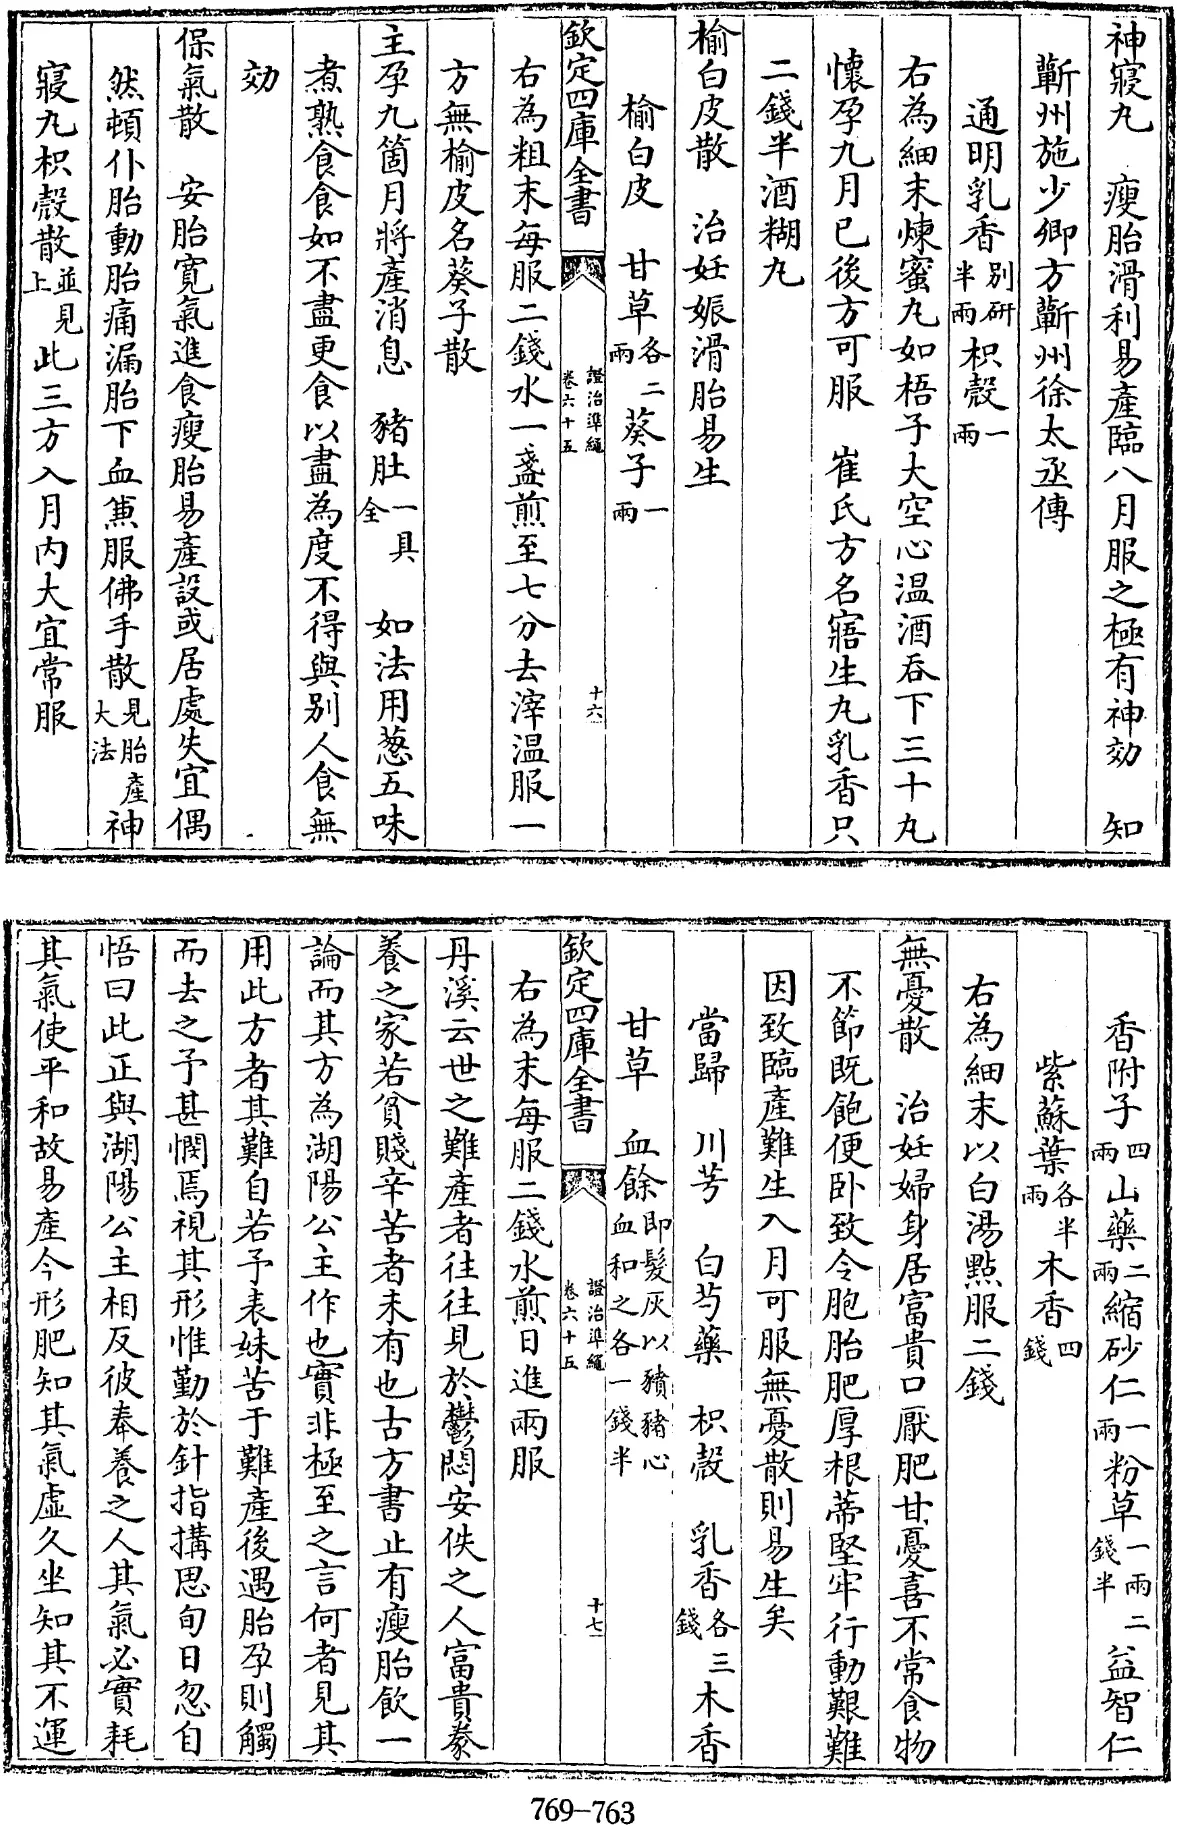 神寢丸　瘦胎滑利易產臨八月服之極有神効　知
蘄州施少卿方蘄州徐太丞傳
通明乳香別研半兩枳殼一兩
右為細末煉蜜丸如梧子大空心温酒吞下三十丸
懷孕九月已後方可服　崔氏方名寤生丸乳香只
二錢半酒糊丸
榆白皮散　治妊娠滑胎易生
榆白皮　甘草各二兩葵子一兩
欽定四庫全書　證治準繩卷六十五　十六
右為粗末每服二錢水一盞煎至七分去滓温服一
方無榆皮名葵子散
主孕九箇月將產消息　豬肚一具全　如法用葱五味
煮熟食食如不盡更食以盡為度不得與别人食無
効
保氣散　安胎寬氣進食瘦胎易產設或居處失宜偶
然頓仆胎動胎痛漏胎下血兼服佛手散見胎產大法神
寢丸枳殼散並見上此三方入月内大宜常服
香附子四兩山藥二兩縮砂仁一兩粉草一兩二錢半益智仁
紫蘇葉各半兩木香四錢
右為細末以白湯㸃服二錢
無憂散　治妊婦身居富貴口厭肥甘憂喜不常食物
不節既飽便卧致令胞胎肥厚根蒂堅牢行動艱難
因致臨產難生入月可服無憂散則易生矣
當歸　川芎　白芍藥　枳殼　乳香各三錢木香
甘草　血餘即髮灰以豶豬心血和之各一錢半
欽定四庫全書　證治準繩卷六十五　十七
右為末每服二錢水煎日進兩服
丹溪云世之難產者往往見於鬱悶安佚之人富貴豢
養之家若貧賤辛苦者未有也古方書止有瘦胎飲一
論而其方為湖陽公主作也實非極至之言何者見其
用此方者其難自若予表妹苦于難產後遇胎孕則觸
而去之予甚憫焉視其形惟勤於針指搆思旬日忽自
悟曰此正與湖陽公主相反彼奉養之人其氣必實耗
其氣使平和故易產今形肥知其氣虛久坐知其不運
769-763